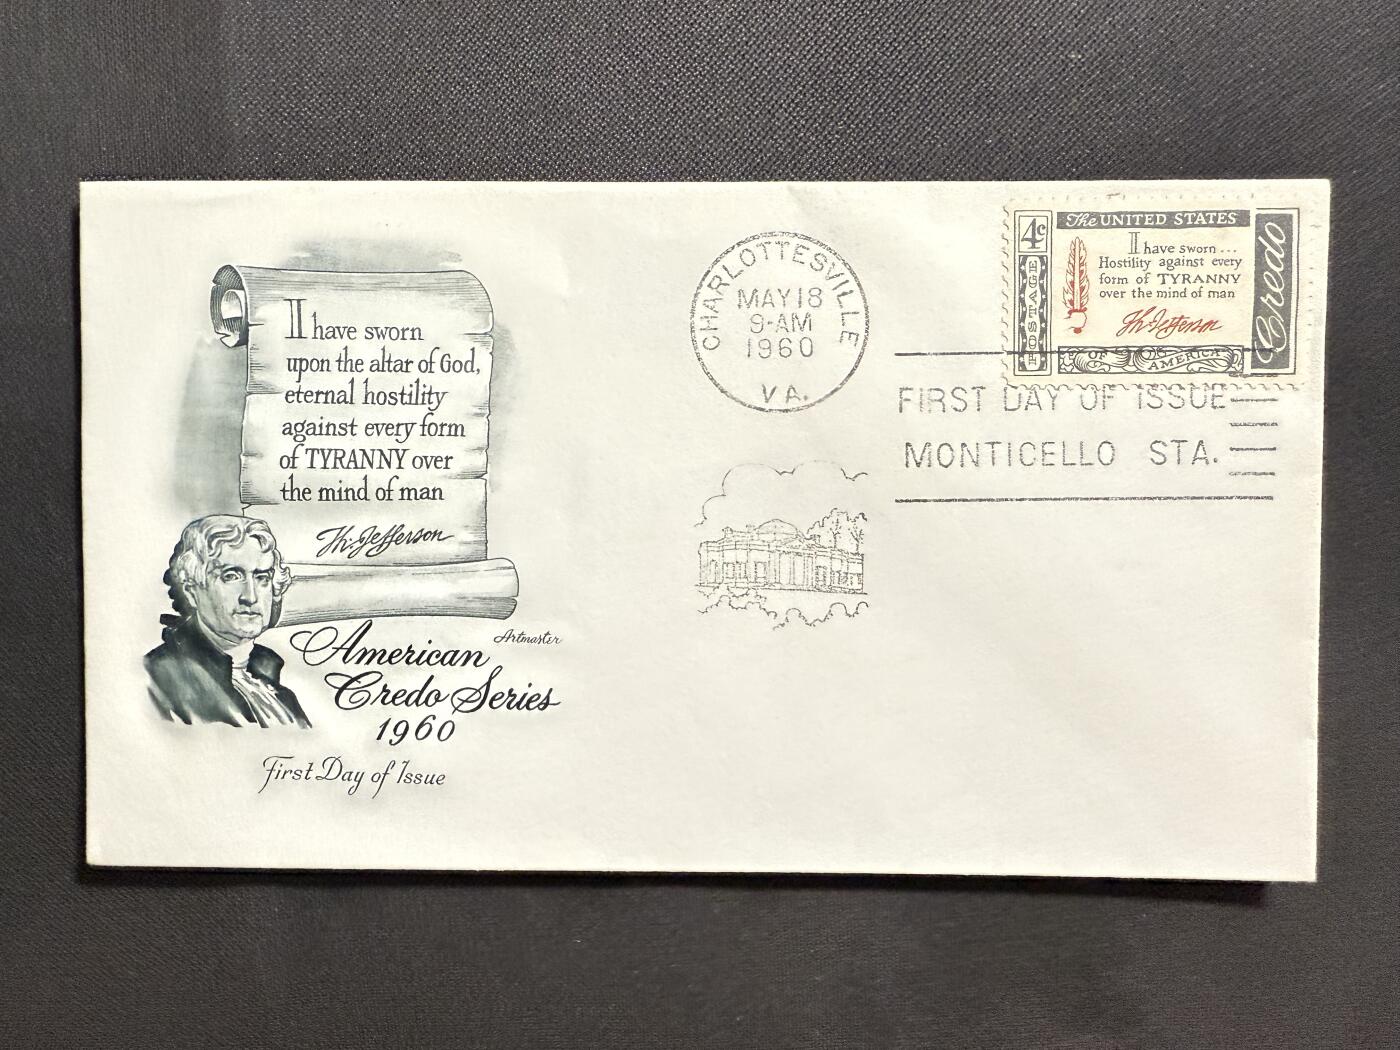 I have sworn
upon the altar of God,
eternal hostility
against every form
of TYRANNY over
the mind of man
Th: Jefferson
Artmaster
American
Credo Series
1960
First Day of Issue
CHARLOTTESVILLE
MAY 18
9-AM
1960
VA.
4c
POSTAGE
The UNITED STATES
I have sworn...
Hostility against every
form of TYRANNY
over the mind of man
Th: Jefferson
OF AMERICA
Credo
FIRST DAY OF ISSUE
MONTICELLO STA.